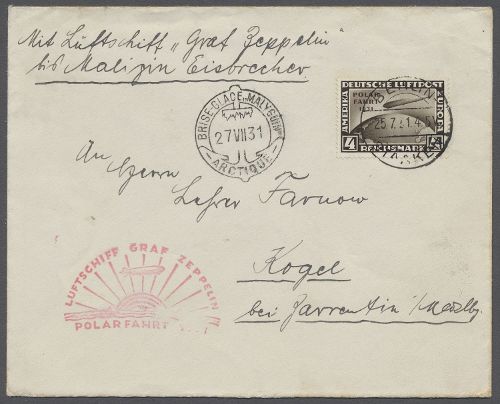 Mit Luftschiff „Graf Zeppelin"
bis Maligin Eisbrecher
DEUTSCHE LUFTPOST
AMERIKA
EUROPA
POLAR
FAHRT
1931
4
4
REICHSMARK
BERLIN
25.7.31.4
BRISE-GLACE „MALYGUIN"
27 VII 31
ARCTIQUE
An Herrn
Lehrer Farnow
Kogel
bei Zarrentin/Mecklbg.
LUFTSCHIFF GRAF ZEPPELIN
POLARFAHRT